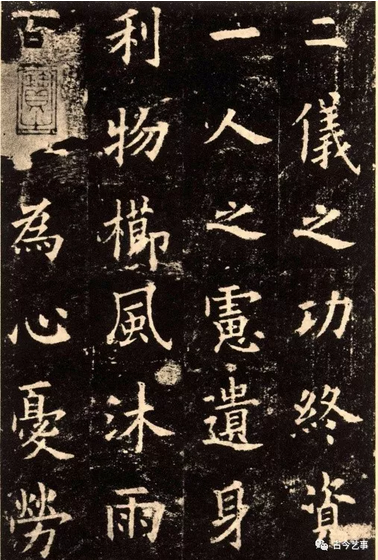 二儀之功終資
一人之慮遺身
利物櫛風沐雨
百為心憂勞
古今艺事